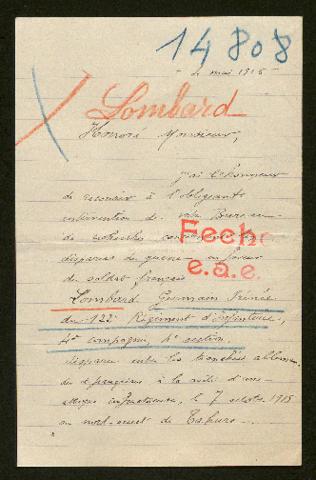 14808
2 mai 1916
Lombard
Honoré Monsieur,
j'ai l'honneur
de recourir à l'obligeante
intervention de votre Bureau
de recherches concernant les
disparus de guerre en faveur
Feche
du soldat français
e.a.e.
Lombard Germain Irénée
du 122e Régiment d'infanterie,
4e compagnie, 1e section
disparu entre les tranchées alleman-
des et françaises à la suite d'une
attaque infructueuse, le 7 octobre 1915
au nord-ouest de Tahure.